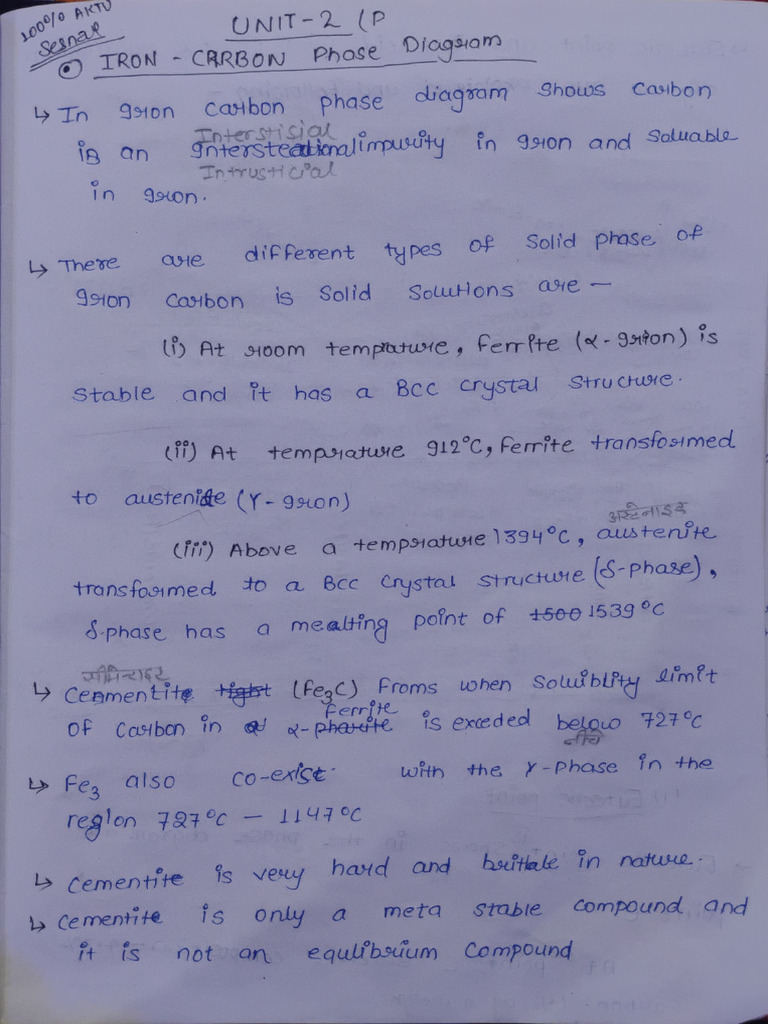 100% AKTU
Sesnal
UNIT-2 (P
IRON - CARBON Phase Diagram
↳ In iron carbon phase diagram shows carbon
Interstisial
is an intersteational impurity in iron and soluable
Intrusticial
in iron.
↳ There are different types of solid phase of
iron carbon is solid solutions are —
(i) At room temprature, ferrite (α-iron) is
stable and it has a BCC crystal structure.
(ii) At temprature 912°C, ferrite transformed
to austenite (γ-iron)
अस्टेनाइट
(iii) Above a temprature 1394°C, austenite
transformed to a BCC crystal structure (δ-phase),
δ-phase has a mealting point of 1500 1539°C
सीमेन्टाइट
↳ Cenmentite (Fe₃C) froms when soluiblity limit
ferrite
of carbon in α- is exceded below 727°C
नीचे
↳ Fe₃ also co-exist with the γ-phase in the
region 727°C — 1147°C
↳ cementite is very hard and brittale in nature.
↳ cementite is only a meta stable compound and
it is not an equlibrium compound